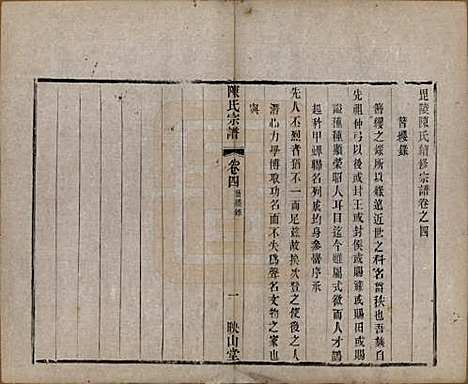 毘陵陳氏續修宗譜卷之四
簪纓錄
簪纓之錄所以嘉遠近世之科名啚狹也吾族自
先祖仲弓以後或封王或封侯或賜諡或賜田或賜
諡種種顯榮照人耳目迄今雖屬式微而人才
起科甲蟬聯名列簪紳身參黌序承
先人丕烈者猶不一而足茲故挨次登之使後之人
潛心力學博取功名而不失為聲名文物之家也
寕
陳氏宗譜
卷四
簪纓錄
一
映山堂